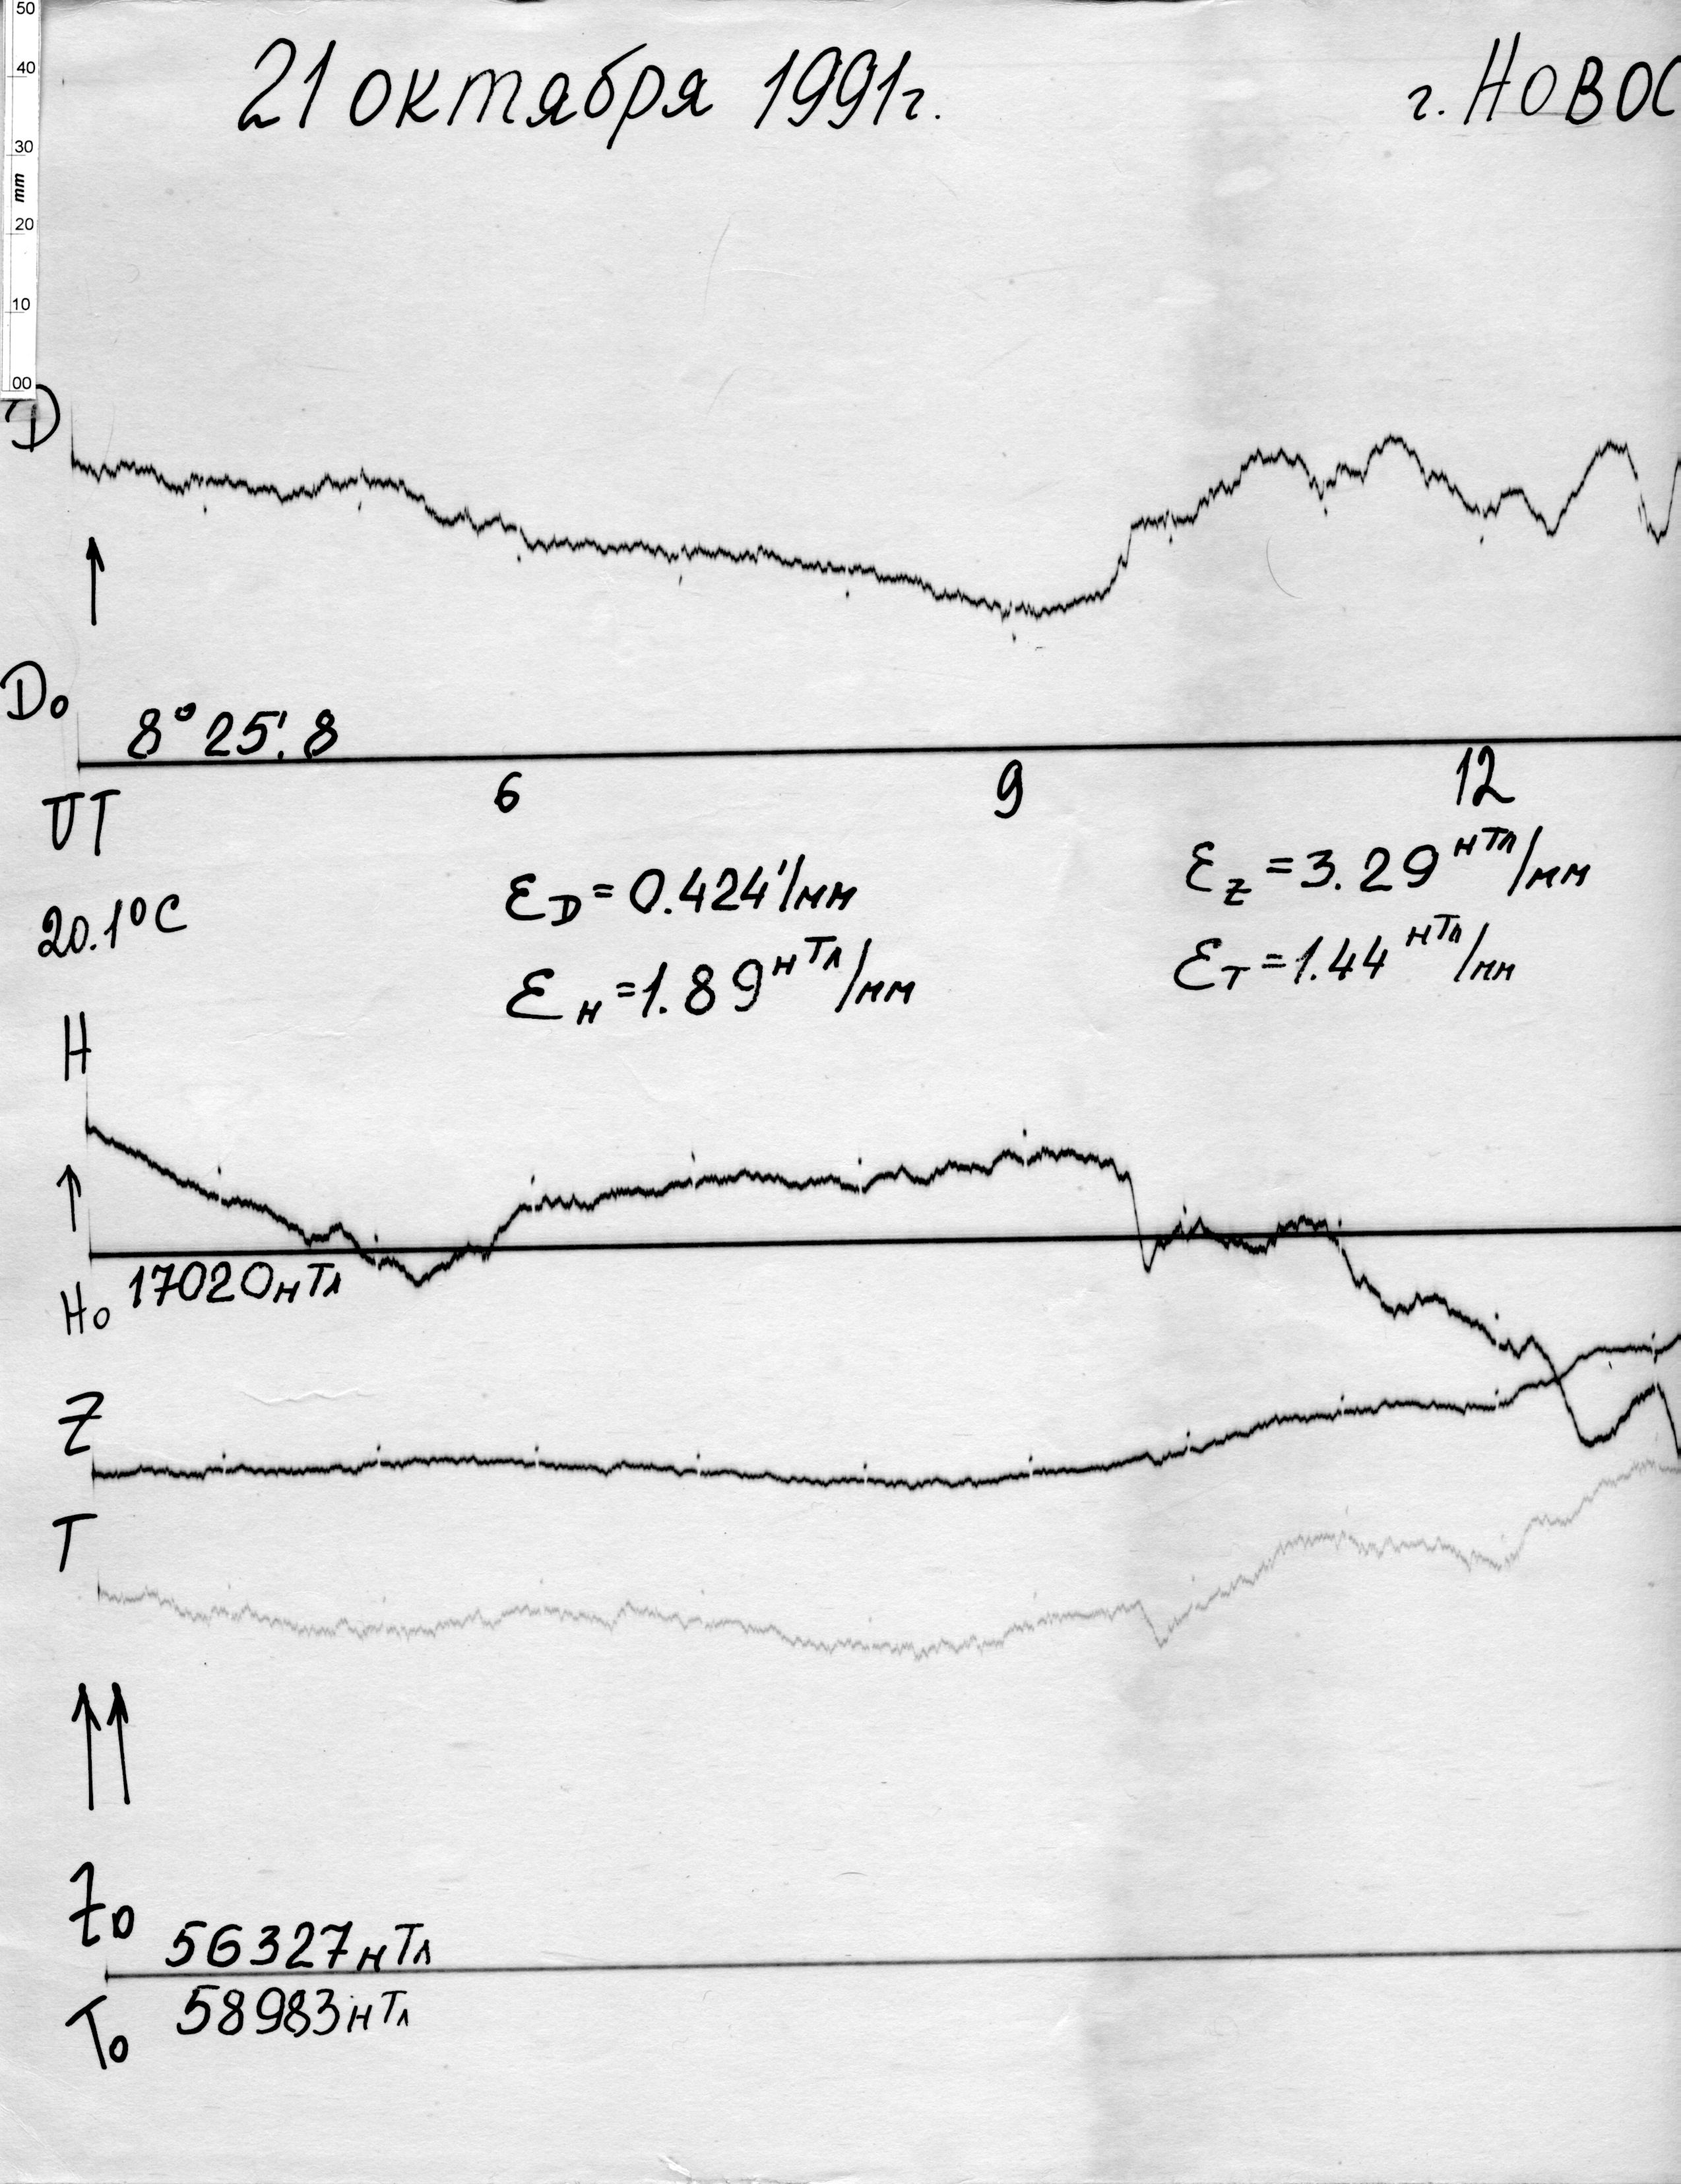 50
40
30
mm
20
10
00
21 октября 1991г. г. Новос
D
D₀ 8°25'.8
UT 6 9 12
20.1°C
ε_D = 0.424'/мм ε_Z = 3.29 нТл/мм
ε_H = 1.89 нТл/мм ε_T = 1.44 нТл/мм
H
H₀ 17020нТл
Z
T
Z₀ 56327нТл
T₀ 58983нТл